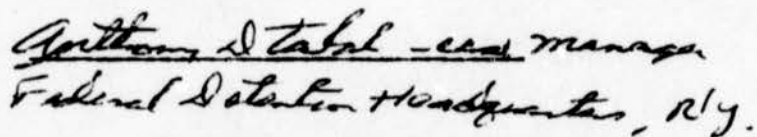 Anthony D - case manager
Federal Detention Headquarters, N.Y.